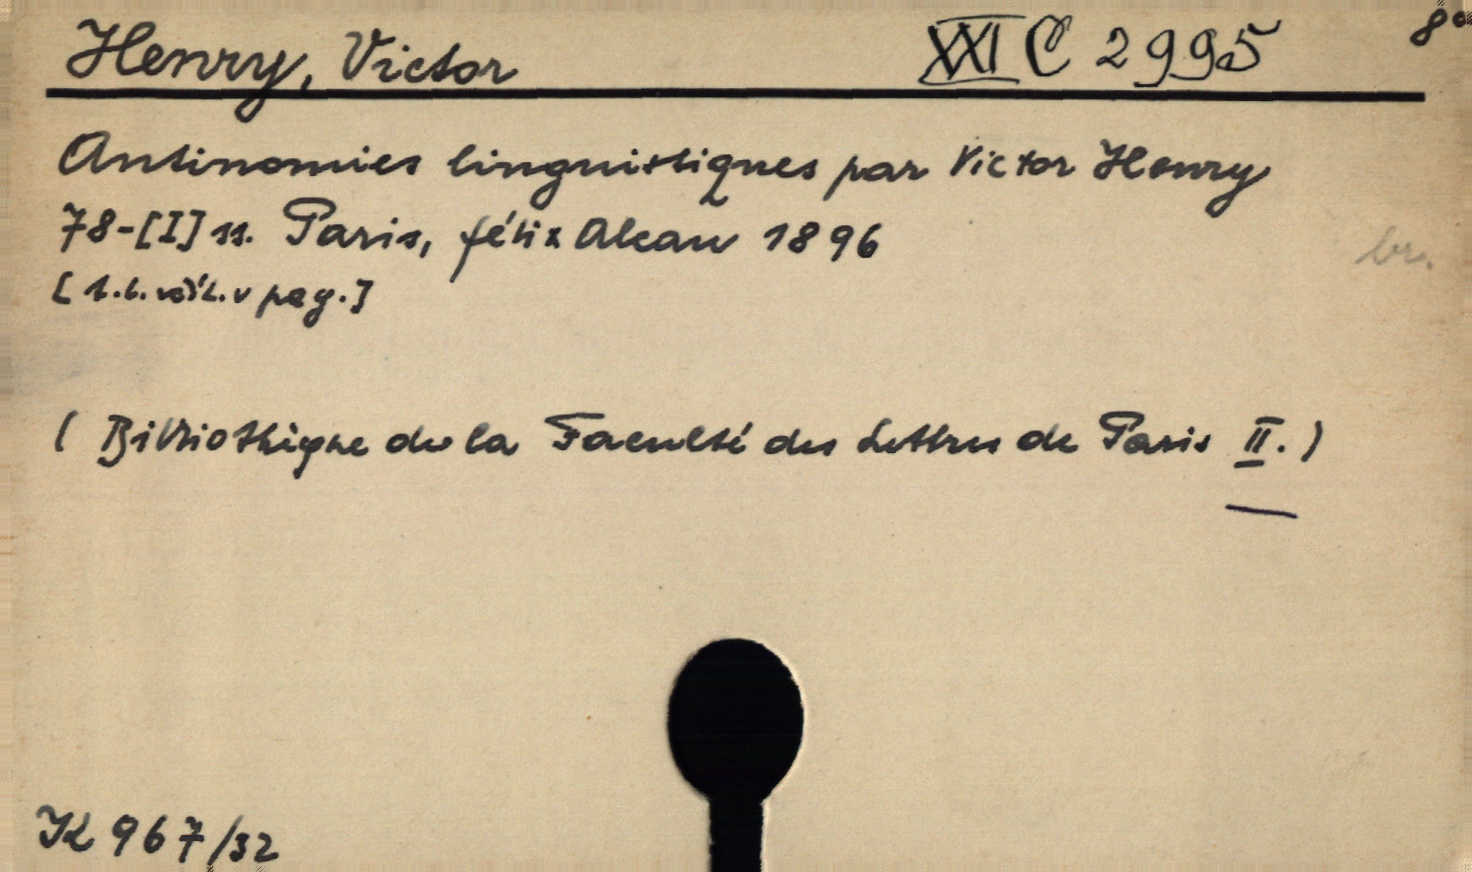 Henry, Victor XXI C 2995 8°
Antinomies linguistiques par Victor Henry
78-[I] ss. Paris, félix Alcan 1896
[t.l. váž. v pag.]
br.
( Bibliothèque de la Faculté des Lettres de Paris II. )
K 967/32